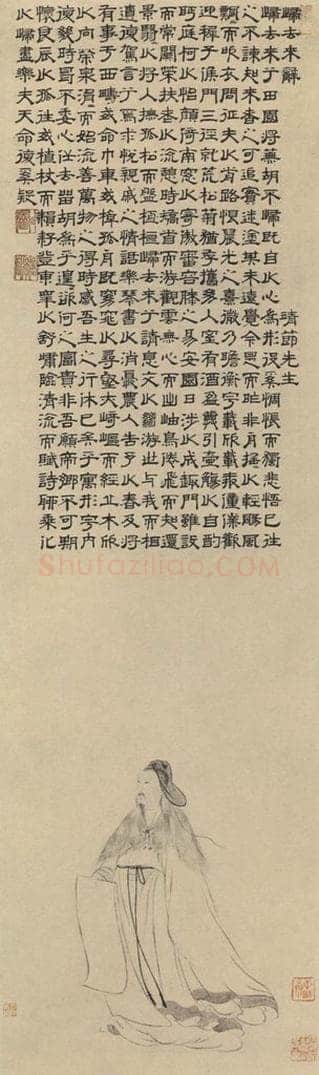 歸去來辭
靖節先生
歸去來兮田園將蕪胡不歸既自以心為形役奚惆悵而獨悲悟已往
之不諫知來者之可追實迷塗其未遠覺今是而昨非舟搖以輕颺風
飄而吹衣問征夫以前路恨晨光之熹微乃瞻衡宇載欣載奔僮僕歡
迎稚子候門三徑就荒松菊猶存攜幼入室有酒盈樽引壺觴以自酌
眄庭柯以怡顏倚南窗以寄傲審容膝之易安園日涉以成趣門雖設
而常關策扶老以流憩時矯首而游觀雲無心而出岫鳥倦飛而知還
景翳以將入撫孤松而盤桓歸去來兮請息交以絕游世與我而相
遺復駕言兮焉求悅親戚之情話樂琴書以消憂農人告予以春及將
有事于西疇或命巾車或棹孤舟既窈窕以尋壑亦崎嶇而經丘木欣
以向榮泉涓而始流善萬物之得時感吾生之行休已矣乎寓形宇內
復幾時曷不委心任去留胡為乎遑欲何之富貴非吾願帝鄉不可期
懷良辰以孤往或植杖而耘耔登東皋以舒嘯臨清流而賦詩聊乘化
以歸盡樂夫天命復奚疑
Shufaziliao.com